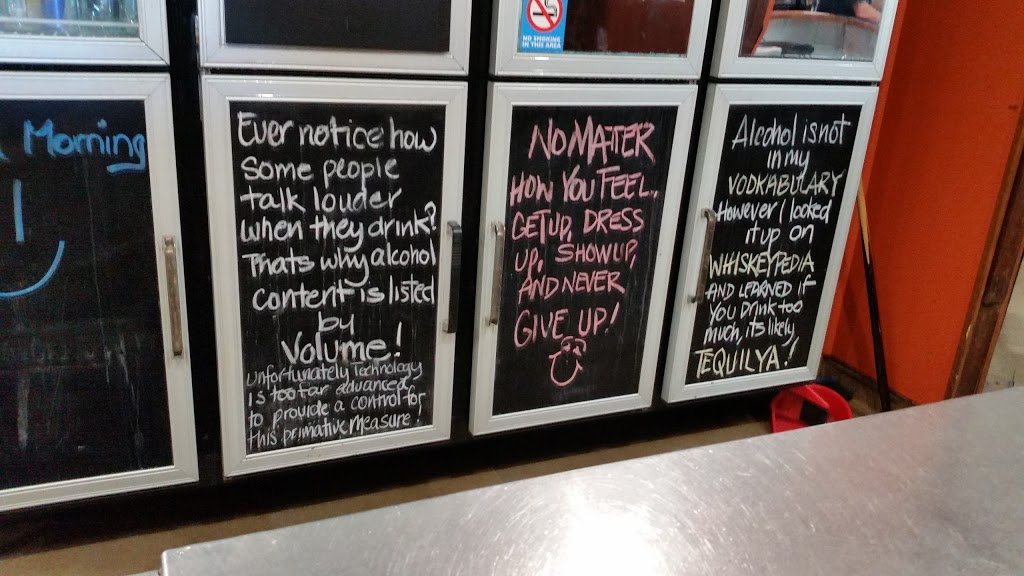 NO SMOKING
IN THIS AREA
Morning
Ever notice how
Some people
talk louder
when they drink?
Thats why alcohol
content is listed
by
Volume!
Unfortunately Technology
is too far advanced
to provide a control for
this primative measure!
NO MATTER
HOW YOU FEEL..
GET UP, DRESS
UP, SHOW UP,
AND NEVER
GIVE UP!
Alcohol is not
in my
VODKABULARY
However I looked
it up on
WHISKEYPEDIA
AND LEARNED if
YOU Drink too
much, its likely
TEQUILYA!